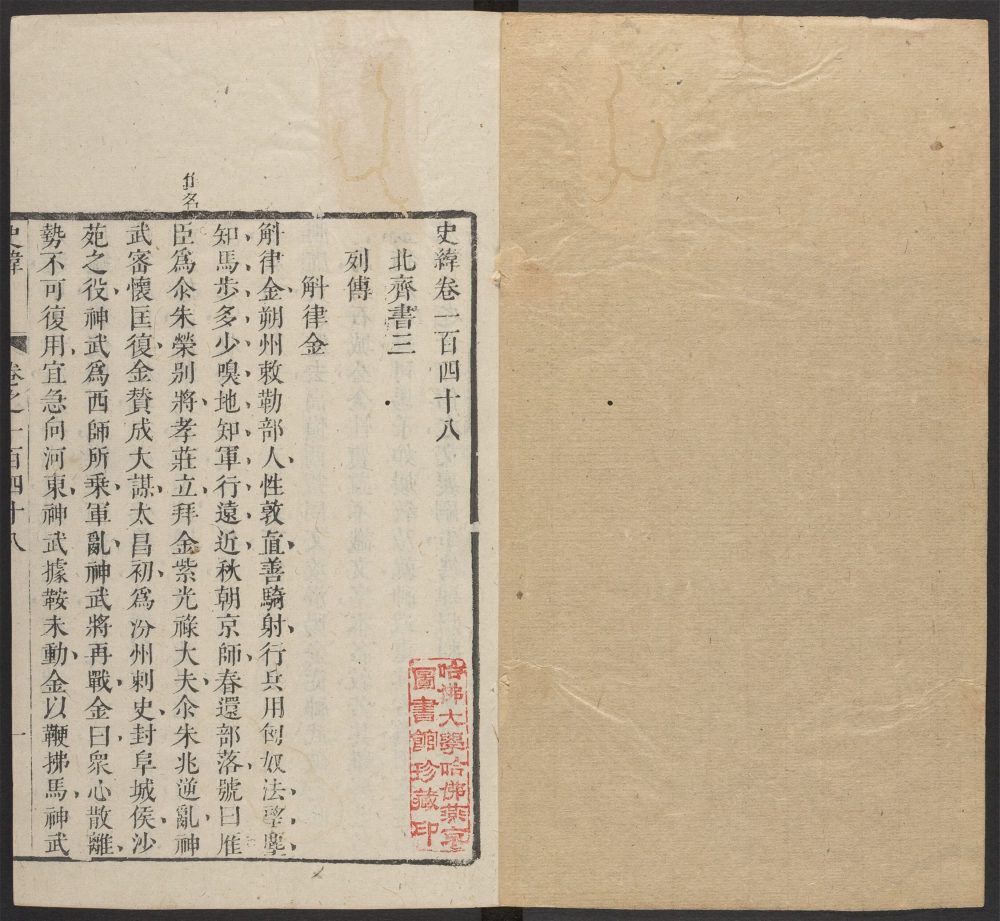 史緯卷一百四十八
北齊書三
列傳
斛律金
斛律金朔州敕勒部人性敦直善騎射行兵用匈奴法望塵
知馬步多少嗅地知軍行遠近秋朝京師春還部落號曰鴈
臣爲尒朱榮別將孝莊立拜金紫光祿大夫尒朱兆逆亂神
武密懷匡復金贊成大謀太昌初爲汾州刺史封阜城侯沙
苑之役神武爲西師所乘軍亂神武將再戰金曰衆心散離
勢不可復用宜急向河東神武據鞍未動金以鞭拂馬神武
史緯
卷之一百四十八
一
隹名
哈佛大學哈佛燕京
圖書館珍藏印